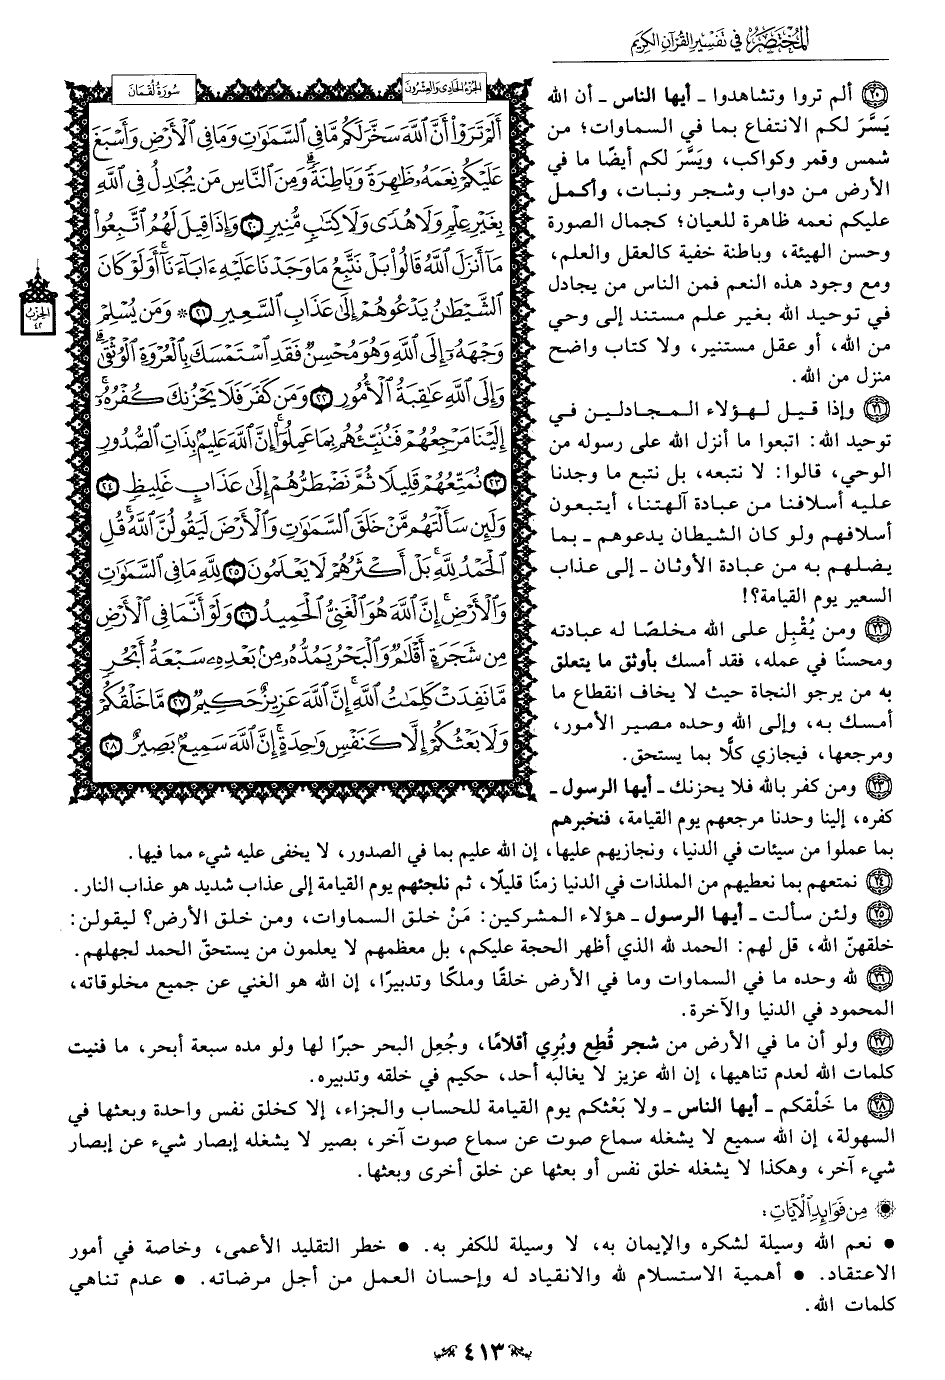 المختصر في تفسير القرآن الكريم
الجزء الحادي والعشرون
سورة لقمان
ألم تروا أن الله سخر لكم ما في السموت وما في الأرض وأسبغ
عليكم نعمه ظهرة وباطنة ومن الناس من يجدل في الله
بغير علم ولا هدى ولا كتب منير ٢٠ وإذا قيل لهم اتبعوا
ما أنزل الله قالوا بل نتبع ما وجدنا عليه ءاباءنا أولو كان
الشيطن يدعوهم إلى عذاب السعير ٢١ * ومن يسلم
وجهه إلى الله وهو محسن فقد استمسك بالعروة الوثقى
وإلى الله عقبة الأمور ٢٢ ومن كفر فلا يحزنك كفره
إلينا مرجعهم فننبئهم بما عملوا إن الله عليم بذات الصدور
٢٣ نمتعهم قليلا ثم نضطرهم إلى عذاب غليظ ٢٤
ولئن سألتهم من خلق السموت والأرض ليقولن الله قل
الحمد لله بل أكثرهم لا يعلمون ٢٥ لله ما في السموت
والأرض إن الله هو الغني الحميد ٢٦ ولو أنما في الأرض
من شجرة أقلم والبحر يمده من بعده سبعة أبحر
ما نفدت كلمت الله إن الله عزيز حكيم ٢٧ ما خلقكم
ولا بعثكم إلا كنفس وحدة إن الله سميع بصير ٢٨
الحزب
٤٢
٢٠ ألم تروا وتشاهدوا ـ أيها الناس ـ أن الله
يَسَّرَ لكم الانتفاع بما في السماوات؛ من
شمس وقمر وكواكب، ويَسَّرَ لكم أيضًا ما في
الأرض من دواب وشجر ونبات، وأكمل
عليكم نعمه ظاهرة للعيان؛ كجمال الصورة
وحسن الهيئة، وباطنة خفية كالعقل والعلم،
ومع وجود هذه النعم فمن الناس من يجادل
في توحيد الله بغير علم مستند إلى وحي
من الله، أو عقل مستنير، ولا كتاب واضح
منزل من الله.
٢١ وإذا قيل لهؤلاء المجادلين في
توحيد الله: اتبعوا ما أنزل الله على رسوله من
الوحي، قالوا: لا نتبعه، بل نتبع ما وجدنا
عليه أسلافنا من عبادة آلهتنا، أيتبعون
أسلافهم ولو كان الشيطان يدعوهم ـ بما
يضلهم به من عبادة الأوثان ـ إلى عذاب
السعير يوم القيامة؟!
٢٢ ومن يُقْبِل على الله مخلصًا له عبادته
ومحسنًا في عمله، فقد أمسك بأوثق ما يتعلق
به من يرجو النجاة حيث لا يخاف انقطاع ما
أمسك به، وإلى الله وحده مصير الأمور،
ومرجعها، فيجازي كلًّا بما يستحق.
٢٣ ومن كفر بالله فلا يحزنك ـ أيها الرسول ـ
كفره، إلينا وحدنا مرجعهم يوم القيامة، فنخبرهم
بما عملوا من سيئات في الدنيا، ونجازيهم عليها، إن الله عليم بما في الصدور، لا يخفى عليه شيء مما فيها.
٢٤ نمتعهم بما نعطيهم من الملذات في الدنيا زمنًا قليلًا، ثم نلجئهم يوم القيامة إلى عذاب شديد هو عذاب النار.
٢٥ ولئن سألت ـ أيها الرسول ـ هؤلاء المشركين: مَنْ خلق السماوات، ومن خلق الأرض؟ ليقولن:
خلقهنّ الله، قل لهم: الحمد لله الذي أظهر الحجة عليكم، بل معظمهم لا يعلمون من يستحقّ الحمد لجهلهم.
٢٦ لله وحده ما في السماوات وما في الأرض خلقًا وملكًا وتدبيرًا، إن الله هو الغني عن جميع مخلوقاته،
المحمود في الدنيا والآخرة.
٢٧ ولو أن ما في الأرض من شجر قُطِع وبُرِي أقلامًا، وجُعِل البحر حبرًا لها ولو مده سبعة أبحر، ما فنيت
كلمات الله لعدم تناهيها، إن الله عزيز لا يغالبه أحد، حكيم في خلقه وتدبيره.
٢٨ ما خَلْقكم ـ أيها الناس ـ ولا بَعْثكم يوم القيامة للحساب والجزاء، إلا كخلق نفس واحدة وبعثها في
السهولة، إن الله سميع لا يشغله سماع صوت عن سماع صوت آخر، بصير لا يشغله إبصار شيء عن إبصار
شيء آخر، وهكذا لا يشغله خلق نفس أو بعثها عن خلق أخرى وبعثها.
من فوائد الآيات:
• نعم الله وسيلة لشكره والإيمان به، لا وسيلة للكفر به. • خطر التقليد الأعمى، وخاصة في أمور
الاعتقاد. • أهمية الاستسلام لله والانقياد له وإحسان العمل من أجل مرضاته. • عدم تناهي
كلمات الله.
٤١٣